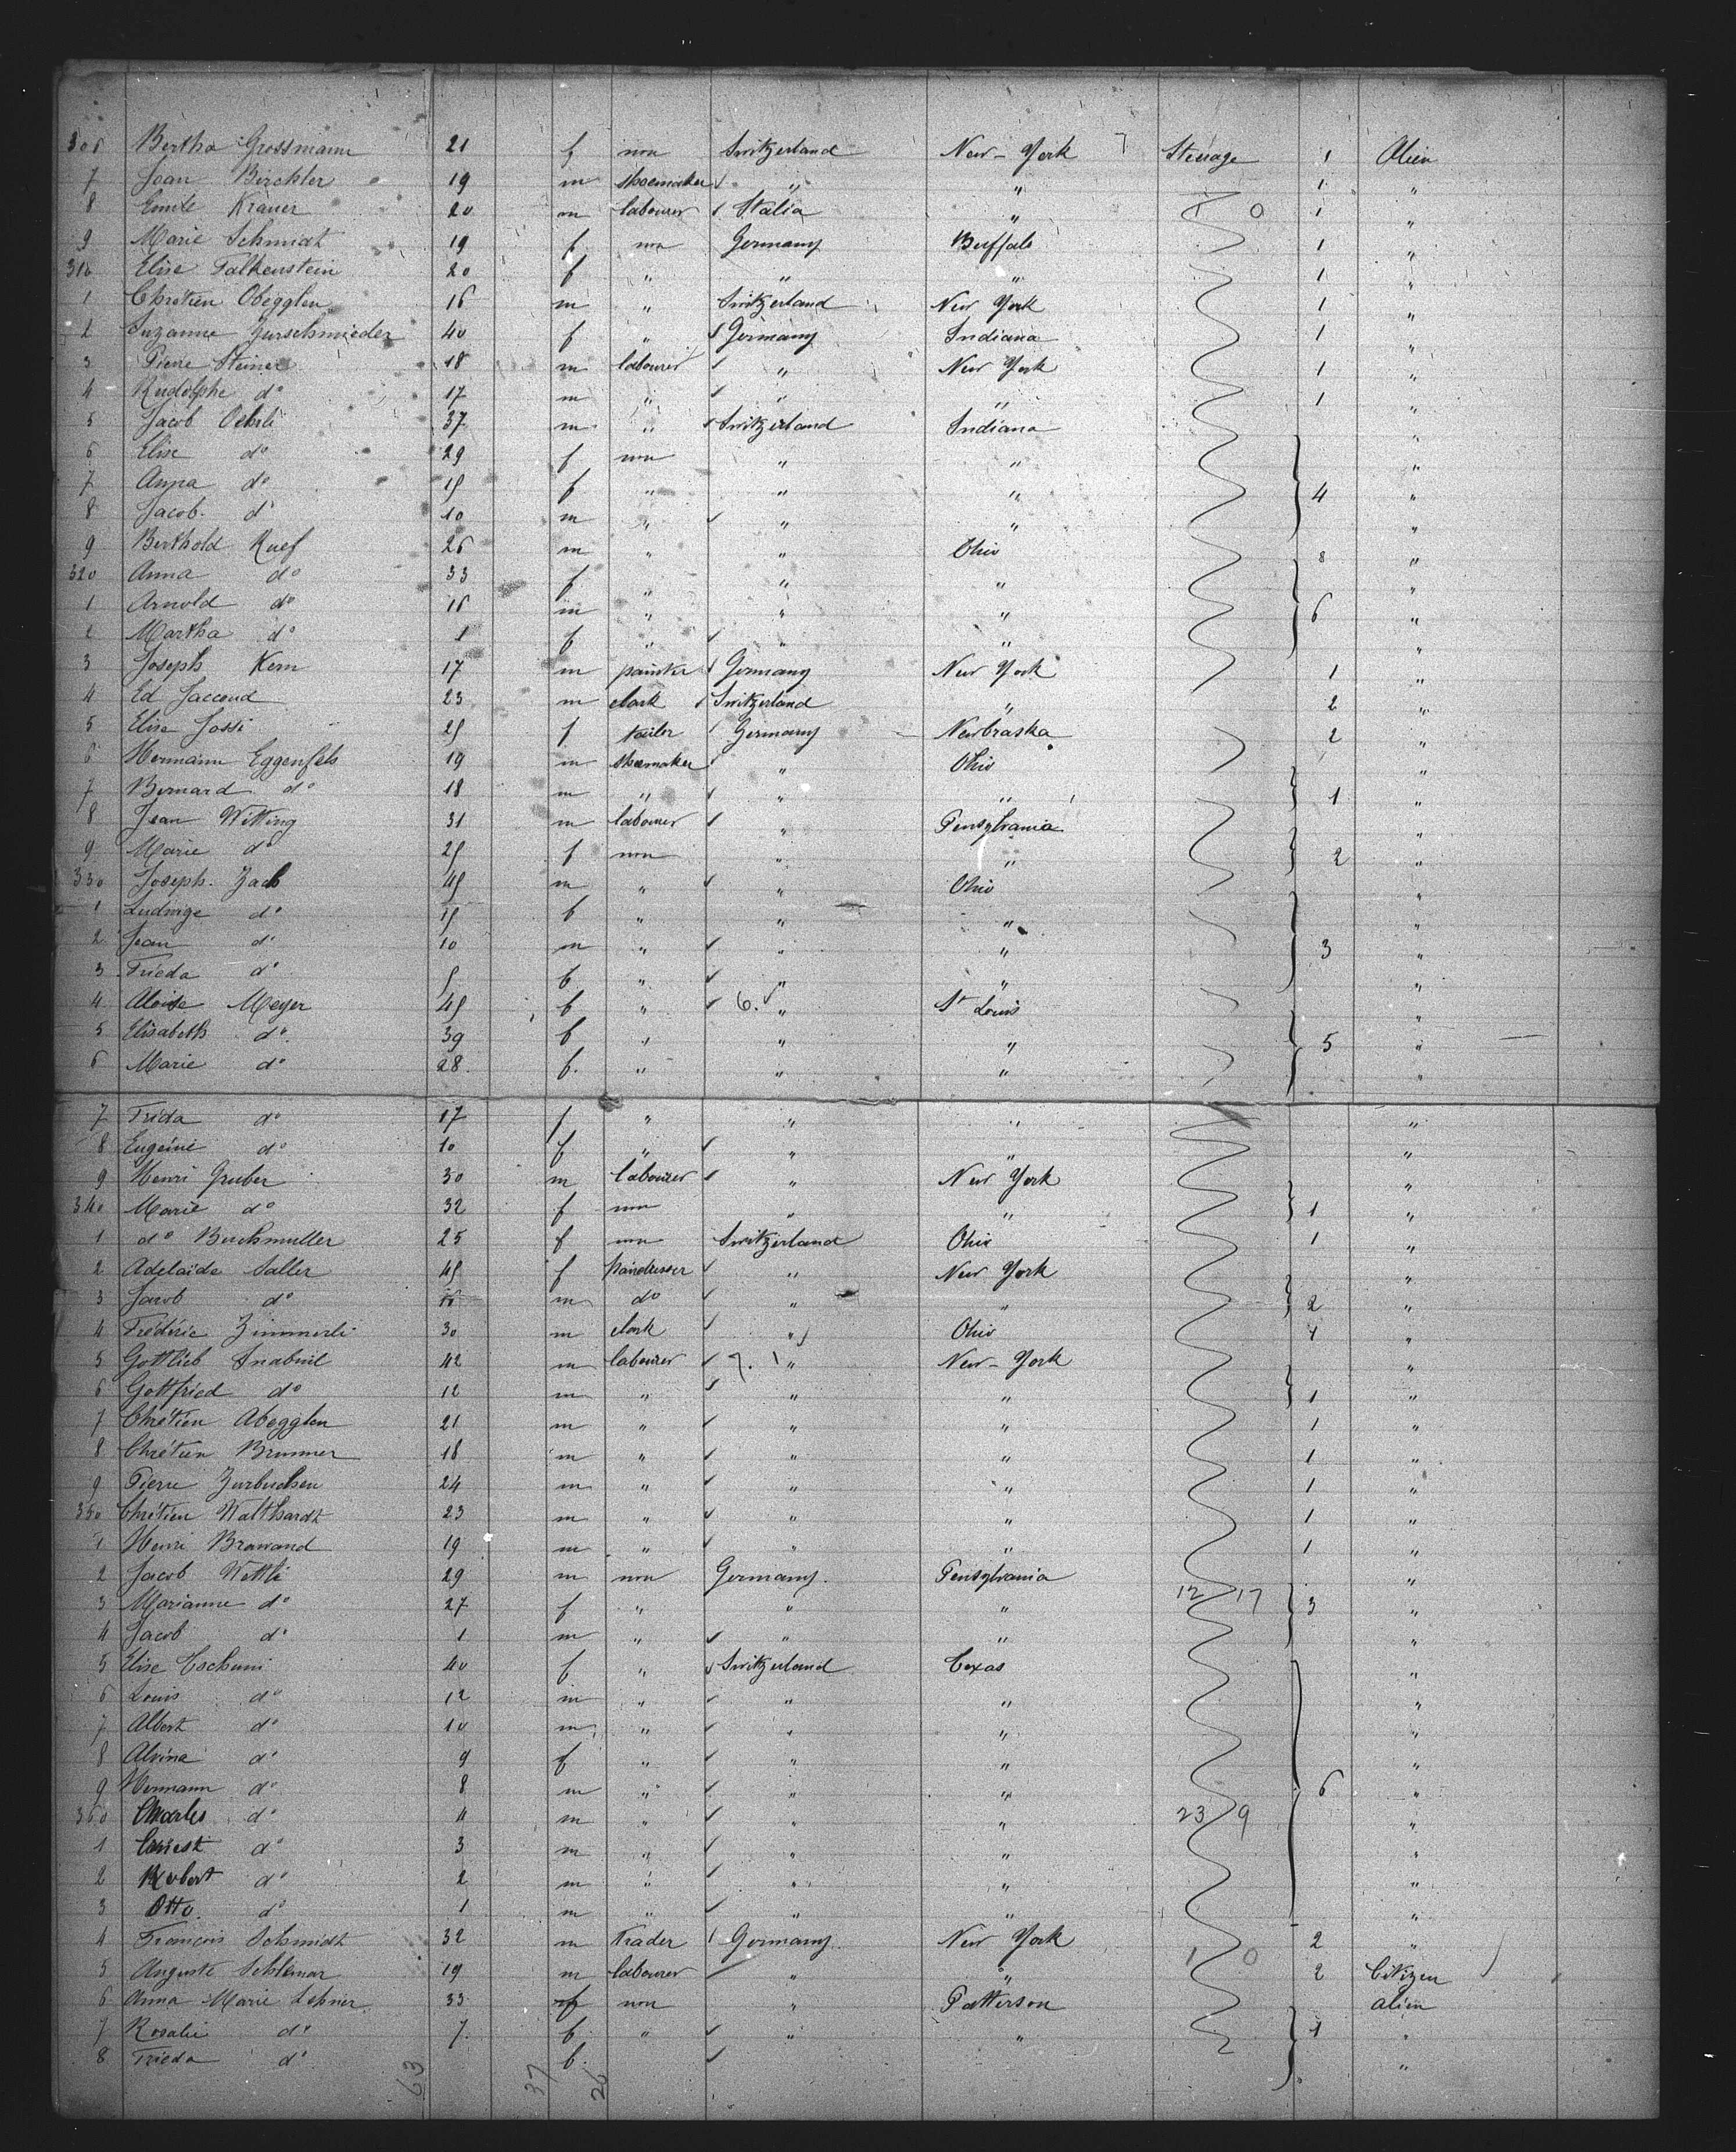 306 Bertha Grossmann 21 f non Switzerland New-York Steerage 1 Alien
7 Jean Birchler 19 m shoemaker " " 1 "
8 Emile Krauer 20 m labourer Italia " 1 0 1 "
9 Marie Schmidt 19 f non Germany Buffalo 1 "
310 Elise Falkenstein 20 f " " " 1 "
1 Chrétien Obegglen 16 m " Switzerland New York 1 "
2 Suzanne Zurschmieder 40 f " Germany Indiana 1 "
3 Pierre Steiner 18 m labourer " New York 1 "
4 Rudolphe do 17 m " " " 1 "
5 Jacob Oehrli 37 m " Switzerland Indiana "
6 Elise do 29 f non " " "
7 Anna do f " " " 4 "
8 Jacob do 10 m " " " "
9 Berthold Ruef 26 m " " Ohio 8 "
320 Anna do 33 f " " " "
1 Arnold do 16 m " " " 6 "
2 Martha do 1 f " " " "
3 Joseph Kern 17 m painter Germany New York 1 "
4 Ed Jaccoud 23 m clark Switzerland " 2 "
5 Elise Jossi f tailer Germany Newbraska 2 "
6 Hermann Eggenfels 19 m shoemaker " Ohio "
7 Bernard do 18 m " " " 1 "
8 Jean Witting 31 m labourer " Pensylvania "
9 Marie do f non " " 2 "
330 Joseph Zach m " " Ohio "
1 Ludwige do f " " " "
2 Jean do 10 m " " " 3 "
3 Frieda do f " " " "
4 Aloise Meyer f " 6. " St Louis "
5 Elisabeth do 39 f " " " 5 "
6 Marie do 28 f. " " " "
7 Frida do 17 f " " " "
8 Eugénie do 10 f " " " "
9 Henri Gruber 30 m labourer " New York "
340 Marie do 32 f non " " 1 "
1 do Buchmuller 25 f non Switzerland Ohio 1 "
2 Adelaïde Saller f " New York "
3 Jacob do m do " " 2 "
4 Frédéric Zimmerli 30 m clark " Ohio 4 "
5 Gottlieb 42 m labourer 7. 1 " New-York "
6 Gottfried do 12 m " " " 1 "
7 Chrétien Abegglen 21 m " " " 1 "
8 Chrétien Brunner 18 m " " " 1 "
9 Pierre Zurbuchen 24 m " " " 1 "
350 Chrétien Walthardt 23 m " " " 1 "
1 Henri Brawand 19 m " " " 1 "
2 Jacob Wettli 29 m non Germany Pensylvania "
3 Marianne do 27 f " " " 12 17 3 "
4 Jacob do 1 m " " " "
5 Elise Tschumi 40 f " Switzerland Texas "
6 Louis do 12 m " " " "
7 Albert do 10 m " " " "
8 Alvina do 9 f " " " "
9 Hermann do 8 m " " " 6 "
360 Charles do 4 m " " " 23 9 "
1 Ernest do 3 m " " " "
2 Robert do 2 m " " " "
3 Otto do 1 m " " " "
4 François Schmidt 32 m Trader Germany New York 2 "
5 Auguste 19 m labourer " " 1 0 2 Citizen
6 Anna Marie Lehner 33 f non " Patterson alien
7 Rosalie do 7 f " " " 1 "
8 Frieda do f. "
63 37 26